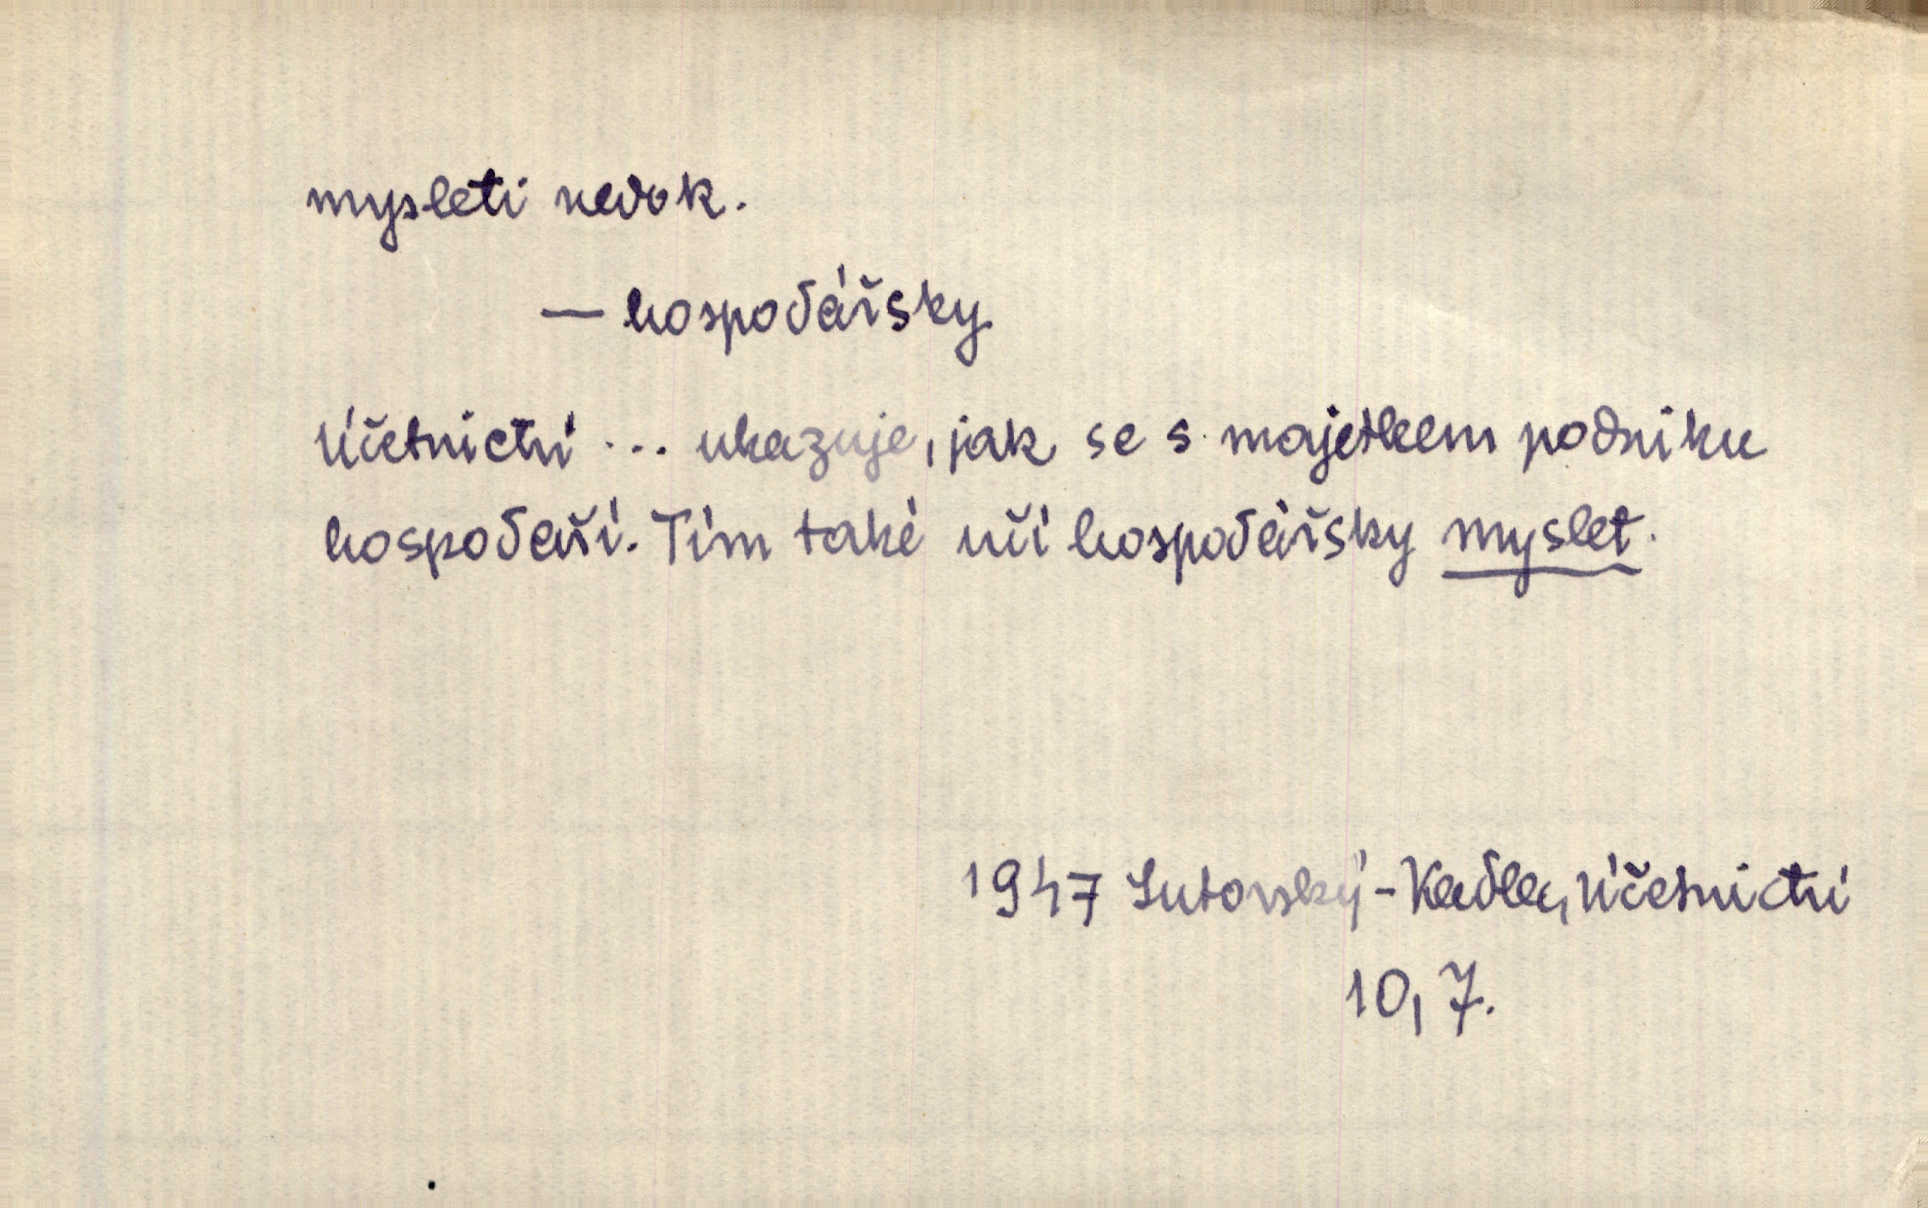 mysleti nedok.
— hospodářsky
Účetnictví ... ukazuje, jak se s majetkem podniku
hospodaří. Tím také učí hospodářsky myslet.
1947 Lutovský-Kadlec, Účetnictví
10, 7.